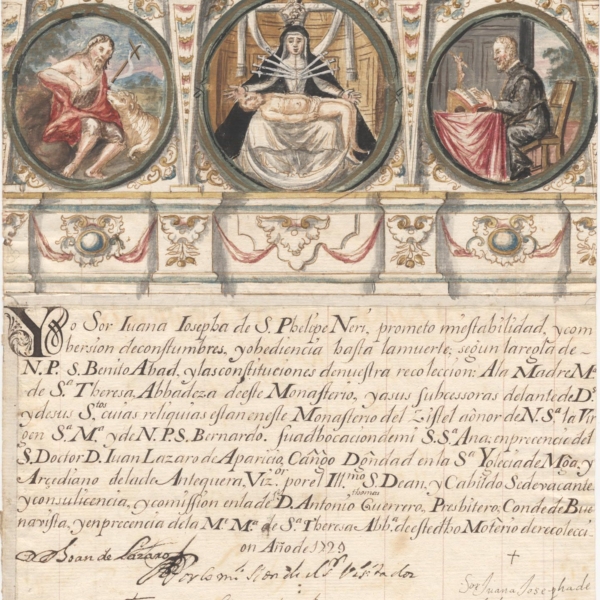 Yo Sor Iuana Iosepha de S. Phelipe Neri, prometo miestabilidad, ycom
bersion deconstumbres, yobediencia hasta lamuerte; segun laregla de
N.P. S. Benito Abad, ylasconstituciones denuestra recoleccion: A la Madre Mª
de Sª Theresa, Abbadeza deeste Monasterio, yasus subcessoras delantede Dˢ
ydesus Sᵗᵒˢ cuias reliquias estan eneste Monasterio del Zistel aônor de N. Sª la Vir
gen Sª Mª y de N.P.S. Bernardo. suadbocaciondemi S.Sª Ana; enprecencia del
S. Doctor D. Iuan Lazaro de Aparicio, Canᵍᵒ Dôndad en la Sª Yglecia de Mgª, y
Arcediano delacde Antequera, Vizᵒʳ por el Illᵐᵒ S. Dean, y Cabildo Sedevacante
yconsulicencia, ycomission en la de D. Antonio thomas Guerrero, Presbitero, Conde de Bue
navista, y enprecencia de la Mᵉ Mª de Sª Theresa Abbª deestedtho Moterio derecolecci-
on Año de 1729
Juan de Lazaro
Por comision del Sr Visitador
Sor Juana Josepha de